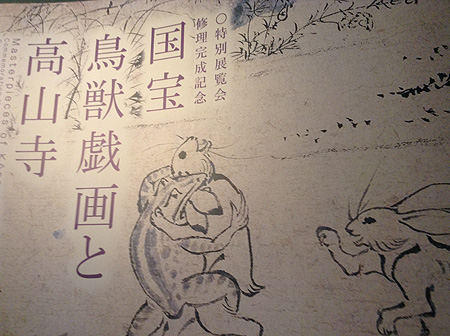 ○特別展覧会
修理完成記念
国宝
鳥獣戯画と
高山寺
Masterpieces of K